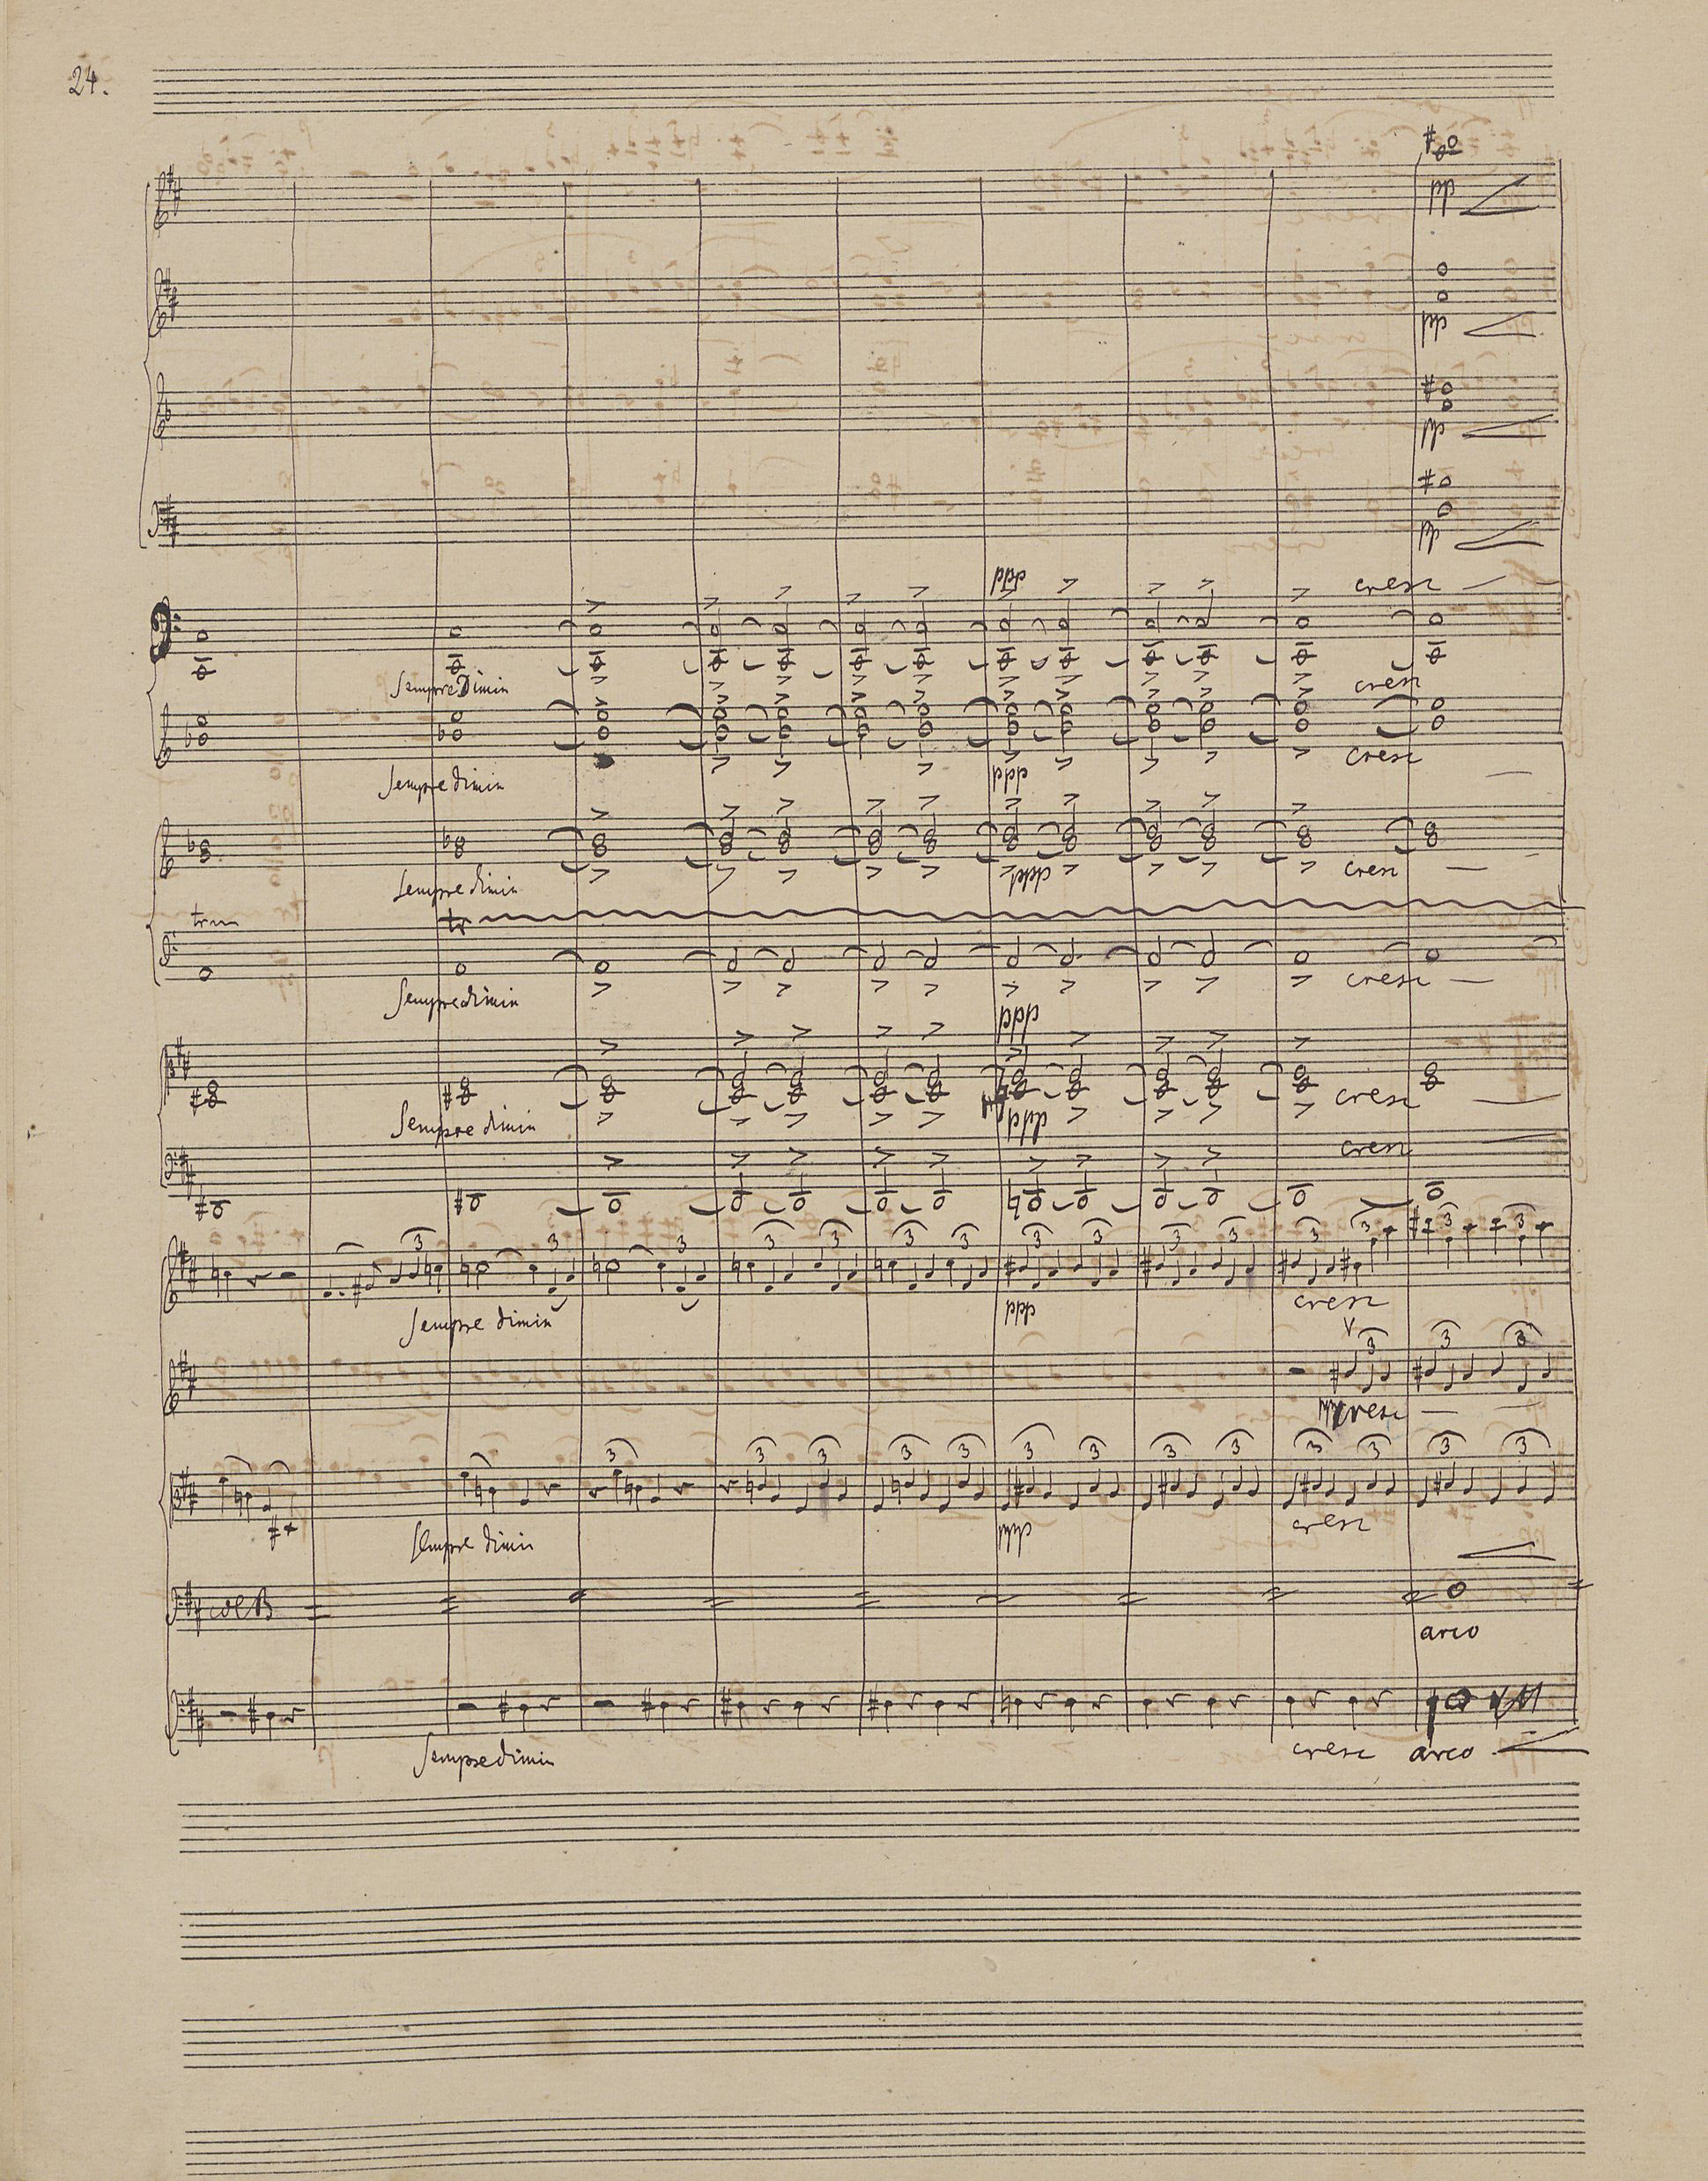 24.
pp
pp
pp
pp
ppp
cresc
Sempre Dimin
cresc
Sempre dimin
ppp
cresc
Sempre dimin
ppp
cresc
tr
tr
Sempre dimin
cresc
ppp
Sempre dimin
ppp
cresc
cresc
3 3 3 3 3 3 3 3 3 3 3 3 3 3 3 3
Sempre dimin
ppp
cresc
3 3 3
cresc
3 3 3 3 3 3 3 3 3 3 3 3 3
Sempre dimin
ppp
cresc
col B
arco
Sempre dimin
cresc
arco